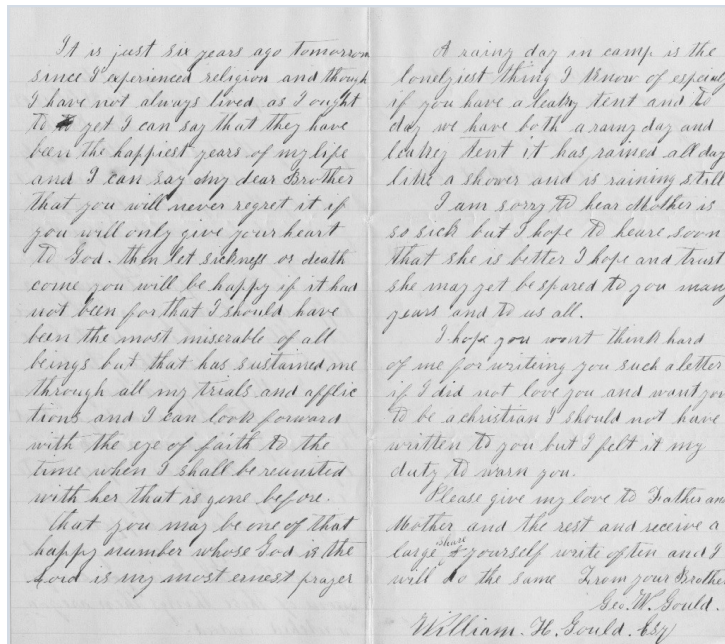 It is just six years ago tomorrow
since I experienced religion and though
I have not always lived as I ought
to yet I can say that they have
been the happiest years of my life
and I can say my dear Brother
that you will never regret it if
you will only give your heart
to God. then let sickness or death
come you will be happy if it had
not been for that I should have
been the most miserable of all
beings but that has sustained me
through all my trials and afflic
tions and I can look forward
with the eye of faith to the
time when I shall be reunited
with her that is gone before.
that you may be one of that
happy number whose God is the
Lord is my most ernest prayer
A rainy day in camp is the
loneliest thing I know of especialy
if you have a leaky tent and to
day we have both a rainy day and
leakey tent it has rained all day
like a shower and is raining still
I am sorry to hear Mother is
so sick but I hope to heare soon
that she is better I hope and trust
she may yet be spared to you many
years and to us all.
I hope you wont think hard
of me for writeing you such a letter
if I did not love you and want you
to be a christian I should not have
written to you but I felt it my
duty to warn you.
Please give my love to Father and
Mother and the rest and receive a
large share yourself write often and I
will do the same From your Brother
Geo. W. Gould.
William. H. Gould. Esq